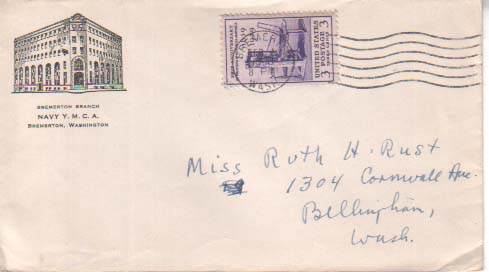 BREMERTON BRANCH
NAVY Y. M. C. A.
BREMERTON, WASHINGTON
UNITED STATES
POSTAGE
3
3
WASH
Miss Ruth H. Rust
1304 Cornwall Ave.
Bellingham,
Wash.